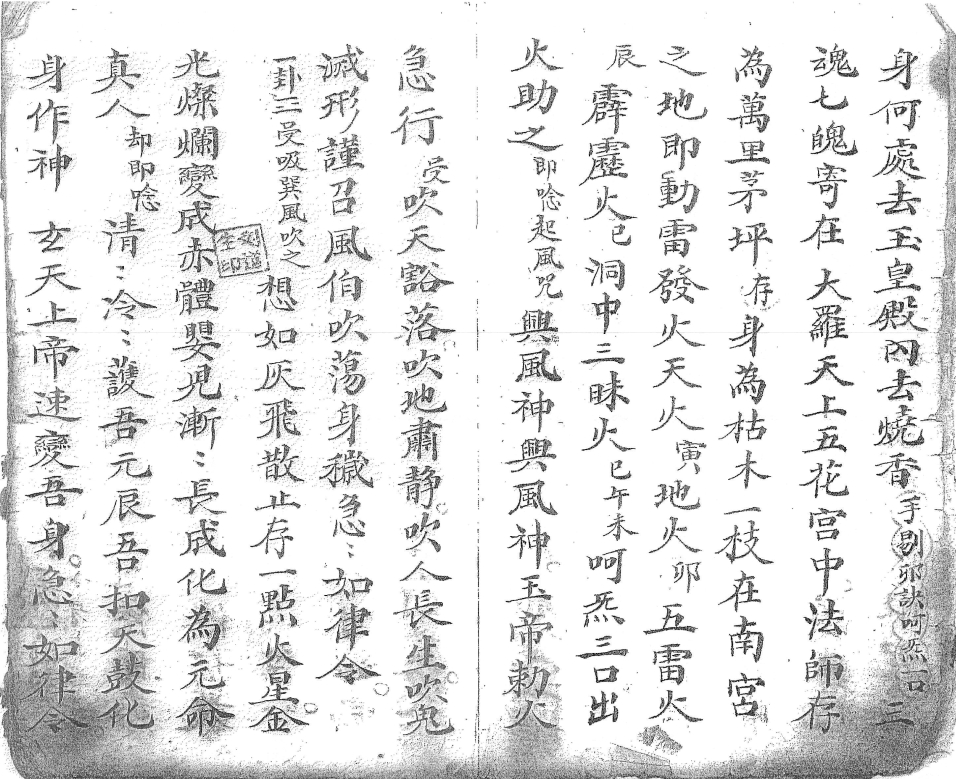 身何處去玉皇殿內去燒香手剔卯訣呵炁一口三
魂七魄寄在大羅天上五花宮中法師存
為萬里茅坪存身為枯木一枝在南宮
之地即動雷發火天火寅地火卯五雷火
辰霹靂火巳洞中三昧火巳午未呵炁三口出
火助之即唸起風咒興風神興風神玉帝勅火
急行受吹天豁落吹地肅静吹人長生吹鬼
滅形謹召風伯吹蕩身穢急〻如律令
一卦三受吸巽風吹之想如灰飛散止存一點火星金
光燦爛變成赤體嬰児漸〻長成化為元命
真人却即唸清〻冷〻護吾元辰吾扣天鼓化
身作神玄天上帝速變吾身急〻如律令